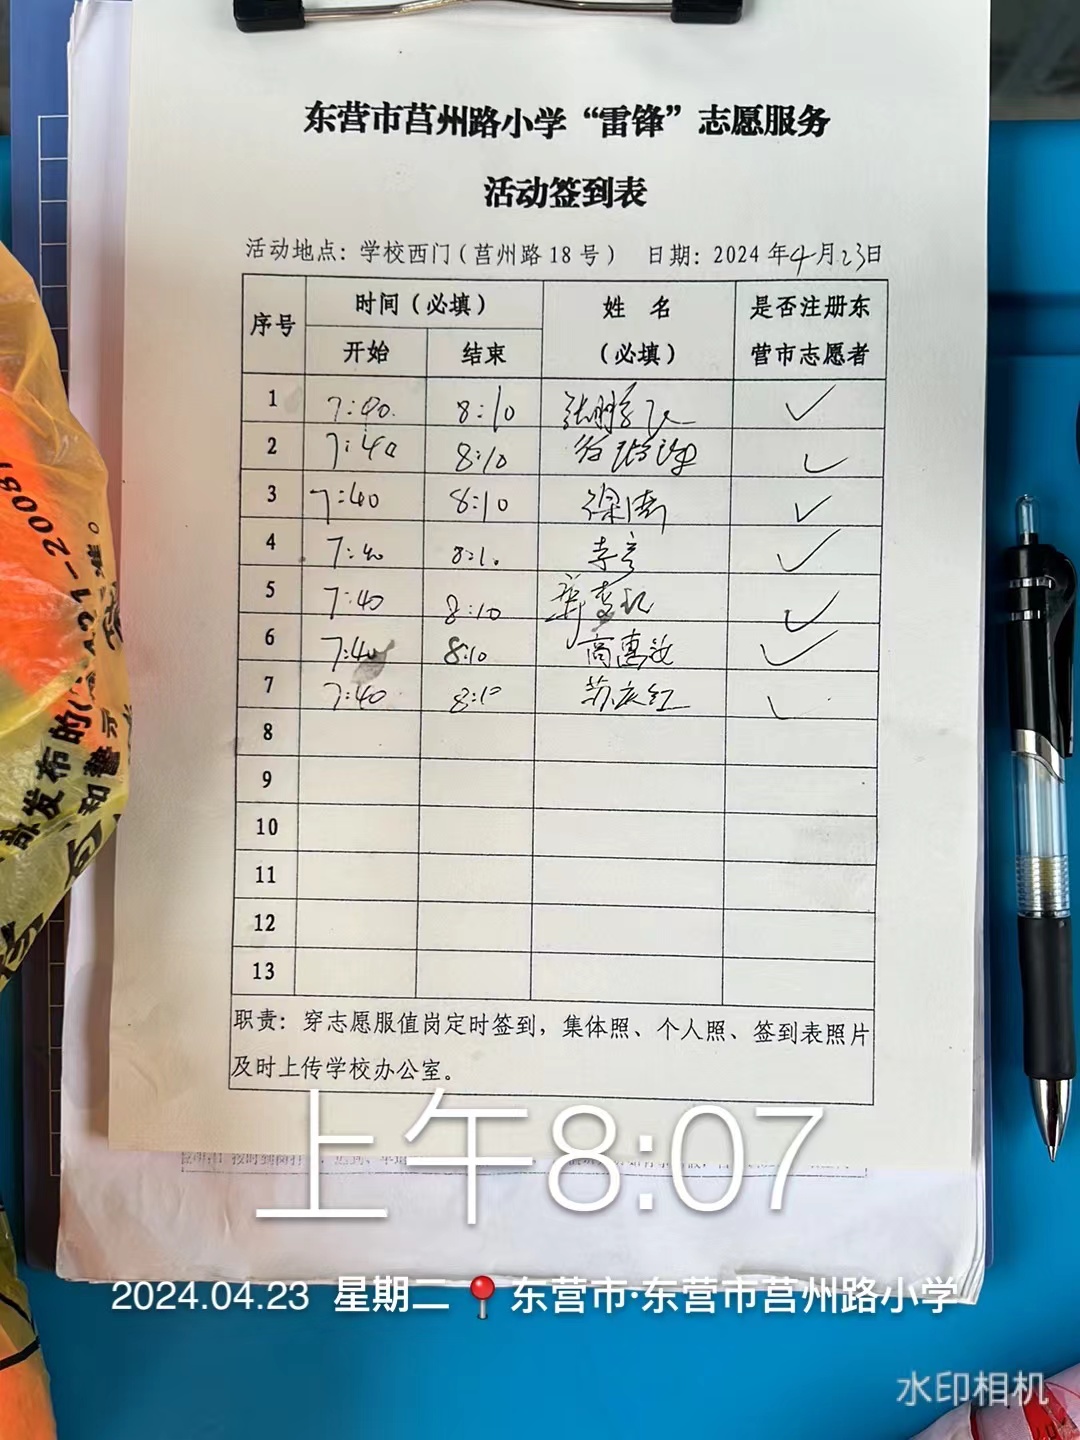 东营市莒州路小学“雷锋”志愿服务
活动签到表
活动地点：学校西门（莒州路18号） 日期：2024年4月23日
序号 时间（必填） 姓 名（必填） 是否注册东营市志愿者
开始 结束
1 7:40. 8:10 ✓
2 7:40 8:10 ✓
3 7:40 8:10 徐倩 ✓
4 7:40 8:10 李言 ✓
5 7:40 8:10 ✓
6 7:40 8:10 高惠汝 ✓
7 7:40 8:10 苏庆红 ✓
8
9
10
11
12
13
职责：穿志愿服值岗定时签到，集体照、个人照、签到表照片
及时上传学校办公室。
上午8:07
2024.04.23 星期二 东营市·东营市莒州路小学
水印相机